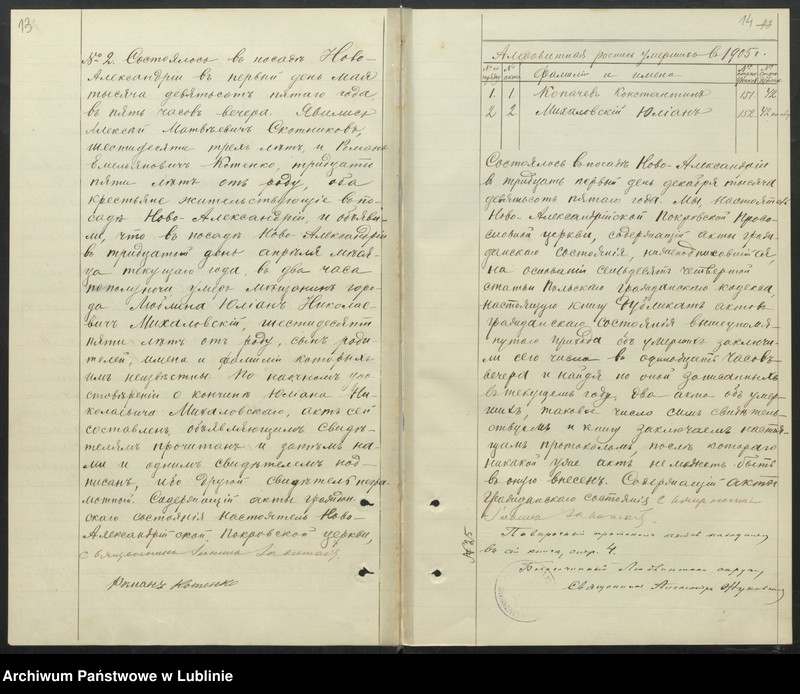 13
№ 2. Состоялось въ посадѣ Ново-
Александріи въ первый день мая
тысяча девятьсотъ пятаго года
въ пять часовъ вечера. Явились
Алексѣй Матвѣевичъ Скотниковъ,
шестидесяти трехъ лѣтъ, и Романъ
Емельяновичъ Котенко, тридцати
пяти лѣтъ отъ роду, оба
крестьяне жительствующіе въ по-
садѣ Ново-Александріи, и объяви-
ли, что въ посадѣ Ново-Александріи
въ тридцатый день апрѣля мѣся-
ца текущаго года, въ два часа
по полуночи умеръ мѣщанинъ горо-
да Люблина Юліанъ Николае-
вичъ Михаловскій, шестидесяти
пяти лѣтъ отъ роду, сынъ роди-
телей, имена и фамиліи которыхъ
имъ неизвѣстны. По наочномъ удо-
стовѣреніи о кончинѣ Юліана Ни-
колаевича Михаловскаго, актъ сей
составленъ, объявляющимъ свидѣ-
телямъ прочитанъ и затѣмъ на-
ми и однимъ свидѣтелемъ под-
писанъ, ибо другой свидѣтель негра-
мотный. Содержащій акты граждан-
скаго состоянія Настоятель Ново-
Александрійской Покровской церкви,
Священникъ
Романъ Котенко
14 13
Алфавитная роспись умершихъ въ 1905 г.
№ по порядку № акта Фамиліи и имена
1 1 Копачевъ Константинъ 151 42
2 2 Михаловскій Юліанъ 152 42
Состоялось въ посадѣ Ново-Александріи
въ тридцать первый день декабря тысяча
девятьсотъ пятаго года. Мы, настоятель
Ново-Александрійской Покровской Право-
славной церкви, содержащій акты граж-
данскаго состоянія, нижеподписавшійся,
на основаніи семьдесятъ четвертой
статьи Польскаго Гражданскаго кодекса,
настоящую книгу Дубликатъ актовъ
гражданскаго состоянія вышеупомя-
нутаго прихода объ умершихъ заключи-
ли сего числа въ одинадцать часовъ
вечера и найдя по оной записанныхъ
въ текущемъ году два акта объ умер-
шихъ, таковое число симъ свидѣтель-
ствуемъ и книгу заключаемъ настоя-
щимъ протоколомъ, послѣ котораго
никакой уже актъ не можетъ быть
въ оную внесенъ. Содержащій акты
гражданскаго состоянія Священникъ
въ сей книгѣ, стр. 4.
Благочинный Люблинскаго округа,
Священникъ Александръ
№ 25
Archiwum Państwowe w Lublinie